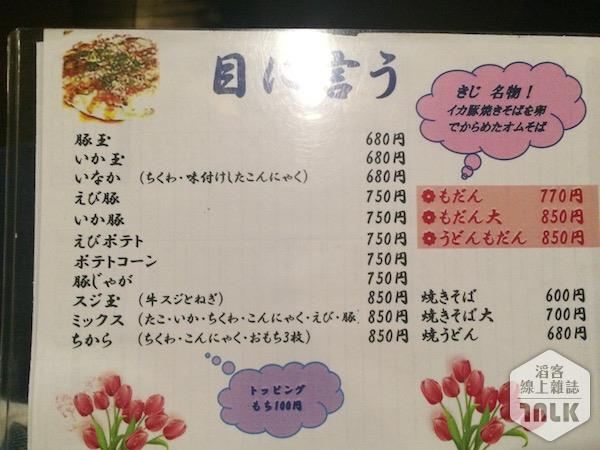 目に言う
豚玉 680円
いか玉 680円
いなか (ちくわ・味付けしたこんにゃく) 680円
えび豚 750円
いか豚 750円
えびポテト 750円
ポテトコーン 750円
豚じゃが 750円
スジ玉 (牛スジとねぎ) 850円
ミックス (たこ・いか・ちくわ・こんにゃく・えび・豚) 850円
ちから (ちくわ・こんにゃく・おもち3枚) 850円
トッピング
もち100円
きじ 名物!
イカ豚焼きそばを卵
でからめたオムそば
もだん 770円
もだん大 850円
うどんもだん 850円
焼きそば 600円
焼きそば大 700円
焼うどん 680円
滔客
線上雜誌
TALK